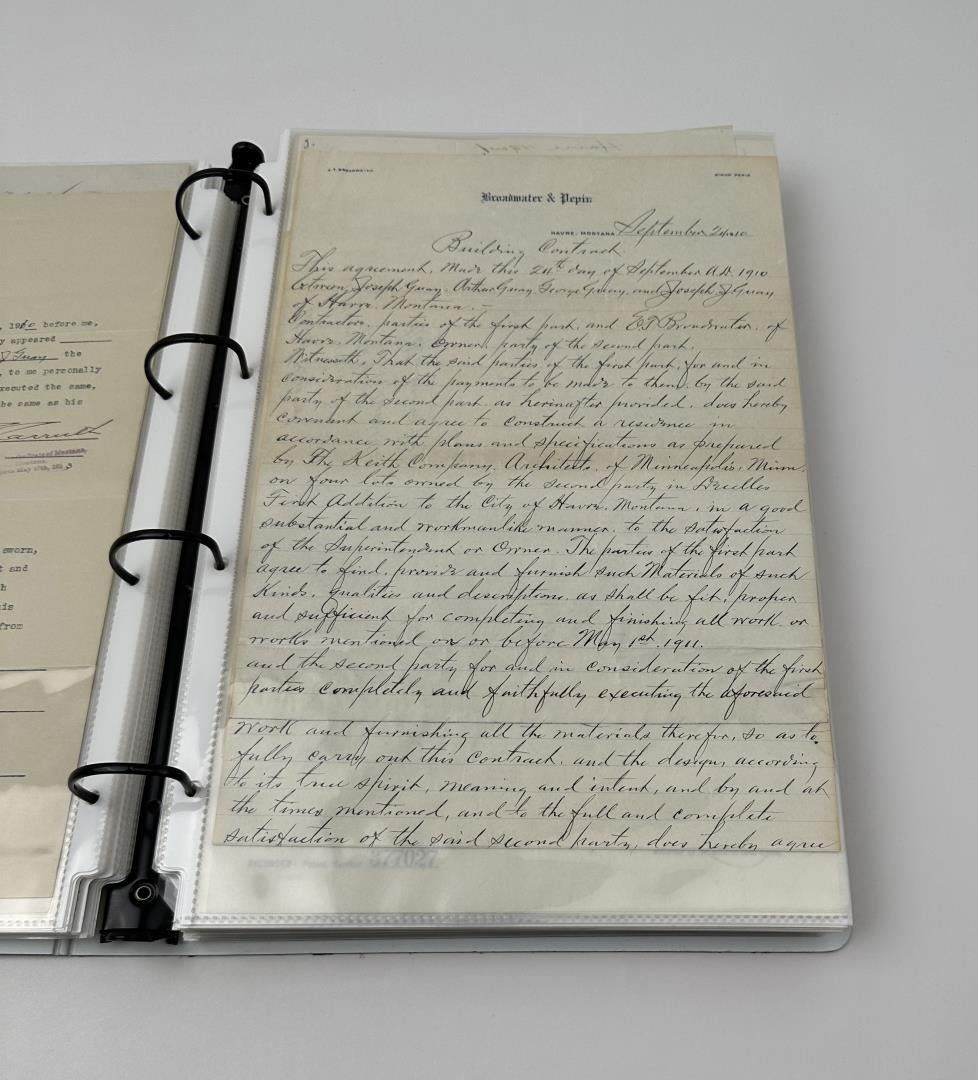 , 1910 before me,
y appeared
J Guay the
, to me personally
xecuted the same,
he same as his
sworn,
t and
h
is
from
3.
E. T. BROADWATER
SIMON PEPIN
Broadwater & Pepin
HAVRE, MONTANA, September 24, 1910
Building Contract.
This agreement, Made this 24th day of September A.D. 1910
between, Joseph Guay, Arthur Guay, George Guay, and Joseph J Guay
of Havre. Montana. —
Contractors, parties of the first part, and E.T. Broadwater, of
Havre, Montana. Owner, party of the second part,
Witnesseth, That the said parties of the first part, for and in
consideration of the payments to be made to them, by the said
party of the second part as herinafter provided, does hereby
covenant and agree to construct a residence in
accordance with plans and specifications as prepared
by The Keith Company, Architects, of Minneapolis, Minn.
on four lots owned by the second party in
First Addition to the City of Havre, Montana, in a good
substantial and workmanlike manner, to the satisfaction
of the Superintendent or Owner. The parties of the first part
agree to find, provide and furnish such Materials of such
Kinds, qualities and descriptions, as shall be fit, proper
and sufficient for completing and finishing all work or
works mentioned on or before May 1st. 1911.
and the second party for and in consideration of the first
parties completely and faithfully executing the aforesaid
work and furnishing all the materials therefor, so as to
fully carry out this contract, and the designs according
to its true spirit, meaning and intent, and by and at
the times mentioned, and to the full and complete
satisfaction of the said second party, does hereby agree
377027